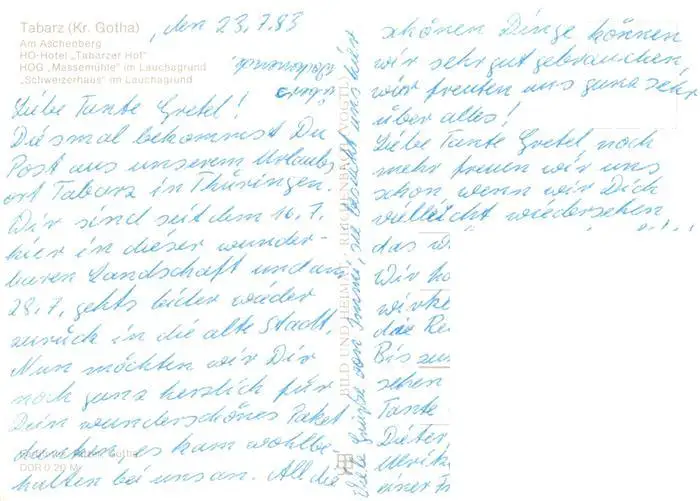 Tabarz (Kr. Gotha)
Am Aschenberg
HO-Hotel „Tabarzer Hof"
HOG „Massemühle" im Lauchagrund
„Schweizerhaus" im Lauchagrund
, den 23.7.83
Liebe Tante Gretel!
Diesmal bekommst Du
Post aus unserem Urlaubs
ort Tabarz in Thüringen.
Wir sind seit dem 16.7.
hier in dieser wunder-
baren Landschaft und am
28.7. gehts leider wieder
zurück in die alte Stadt.
Nun möchten wir Dir
noch ganz herzlich für
Dein wunderschönes Paket
danken, es kam wohlbe
halten bei uns an. All die
DDR 0,20 M
BILD UND HEIMAT REICHENBACH (VOGTL)
Viele Grüße von Immi, sie besucht uns hier
schönen Dinge können
wir sehr gut gebrauchen,
wir freuten uns ganz sehr
über alles!
Liebe Tante Gretel, noch
mehr freuen wir uns
schon wenn wir Dich
vielleicht wiedersehen
das
Wir
die
Bis
sehen
Tante
Dieter
einer